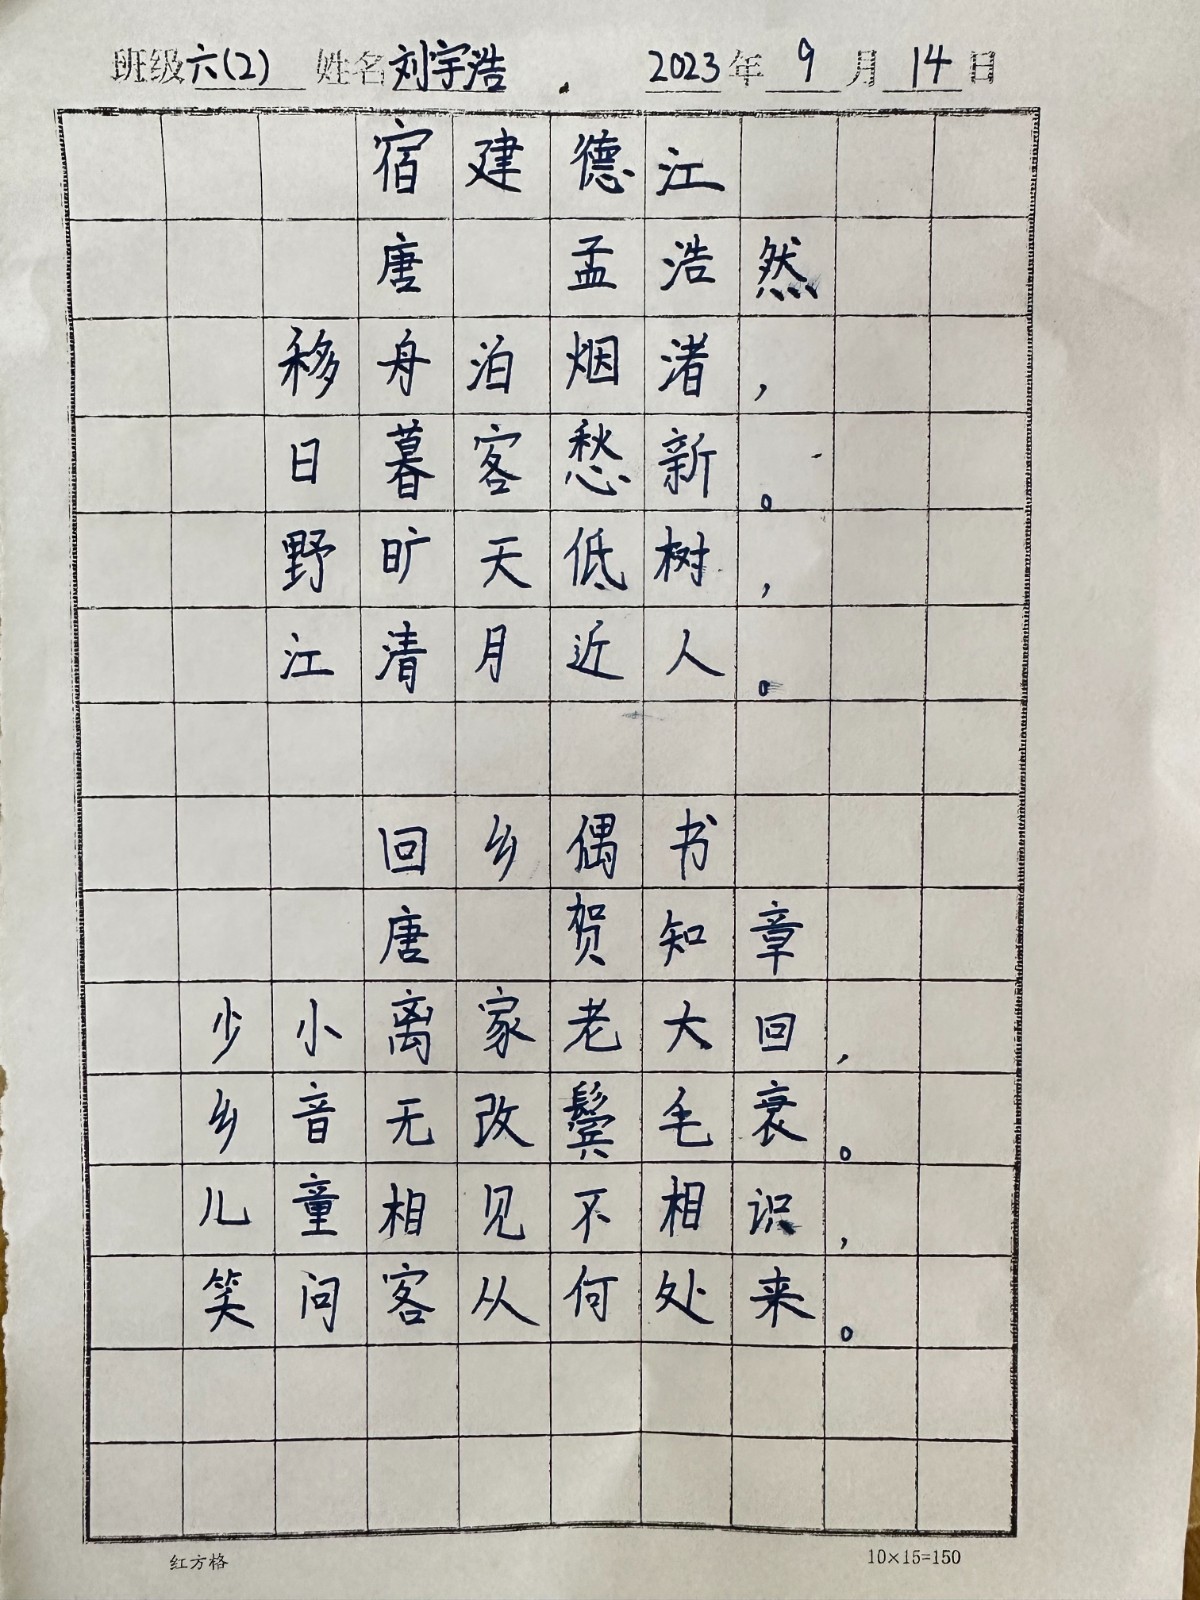 班级六(2) 姓名刘宇浩 2023年9月14日
宿建德江
唐 孟浩然
移舟泊烟渚，
日暮客愁新。
野旷天低树，
江清月近人。
回乡偶书
唐 贺知章
少小离家老大回，
乡音无改鬓毛衰。
儿童相见不相识，
笑问客从何处来。
红方格 10×15=150